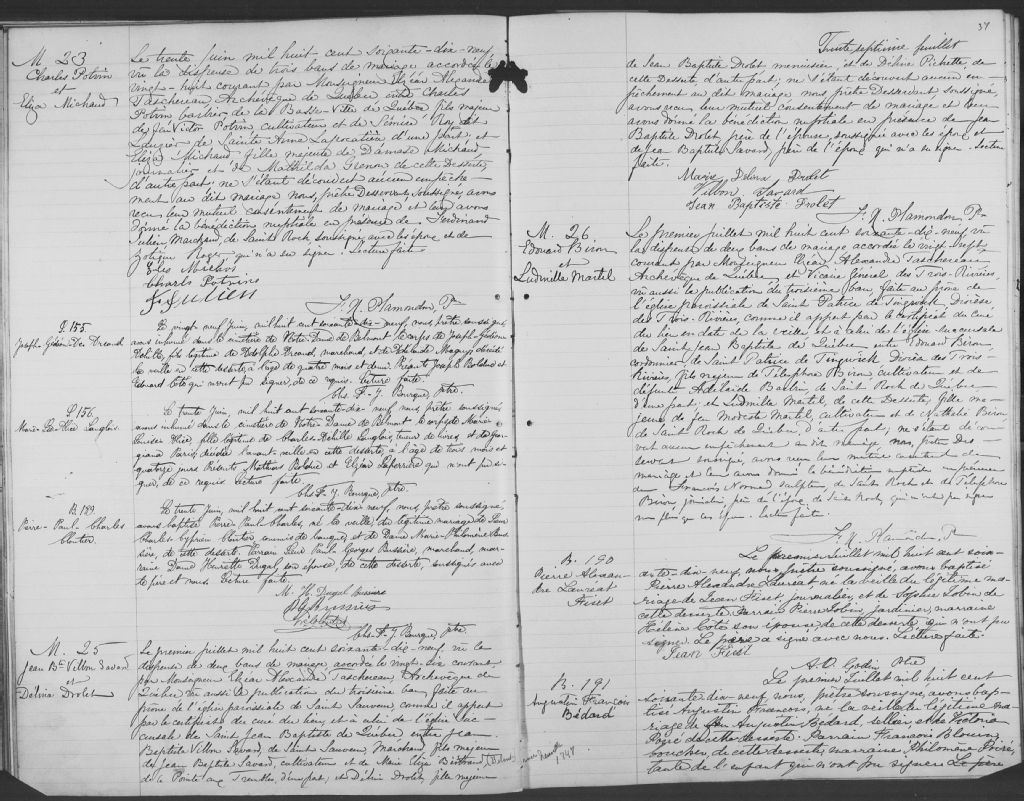 M. 23
Charles Potvin
et
Eliza Michaud
Le trente Juin mil huit cent soixante-dix-neuf,
vu la dispense de trois bans de mariage accordée le
vingt-huit courant par Monseigneur Elzéar Alexandre
Taschereau Archevêque de Québec entre Charles
Potvin barbier de la Basse-Ville de Québec, fils majeur
de feu Victor Potvin cultivateur et de
de Sainte Anne Lapocatière d'une part, et
Eliza Michaud, fille majeure de Damase Michaud
journalier et de Mathilda Grenon de cette Desserte,
d'autre part, ne s'étant découvert aucun empêche-
ment au dit mariage Nous, prêtre Desservant, soussigné, avons
reçu leur mutuel consentement de mariage et leur avons
donné la bénédiction nuptiale en présence de Ferdinand
Julien, Marchand, de Saint Roch, soussigné avec les époux et de
Roger qui n'a su signer. Lecture faite.
Charls Potvin
F. Julien
F. X. Plamondon, Ptre
S. 155
Joseph
Le vingt-neuf Juin, mil huit cent soixante-dix-neuf, nous, prêtre soussigné,
avons inhumé dans le cimetière de Notre Dame de Belmont le corps de Joseph-Gédéon
Achille, fils légitime de Adolphe marchand, et de décédé
la veille en cette desserte à l'âge de quatre mois et demi. Présents Joseph Bolduc et
Edouard Côté qui n'ont pu signer, de ce requis. Lecture faite.
Chs. F. J. Bourque, ptre.
S. 156
Marie- Alice Langlois
Le trente Juin, mil huit cent soixante-dix-neuf nous prêtre soussigné
avons inhumé dans le cimetière de Notre Dame de Belmont le corps de Marie
Alice, fille légitime de Charles Achille Langlois, teneur de livres, et de Geor-
giana Paris, décédée l'avant-veille en cette desserte, à l'âge de trois mois et
quatorze jours. Présents Mathias Bolduc et Elzéar Laperrière qui n'ont pu si-
gner, de ce requis. Lecture faite.
Chs F. J. Bourque, ptre.
B. 189
Pierre-Paul-Charles
Cloutier
Le trente Juin, mil huit cent soixante-dix-neuf, nous, prêtre soussigné,
avons baptisé Pierre-Paul-Charles, né la veille, du légitime mariage de
Charles Cyprien Cloutier commis de banque, et de Dame Marie-Philomène Bus-
sière, de cette desserte. Parrain Paul Georges Bussière, marchand, mar-
raine Dame Henriette Dugal, son épouse, de cette desserte, soussignés avec
le père et nous. Lecture faite.
M. H. Dugal Bussière
Chs. F. J. Bourque, ptre.
M. 25
Jean Bte Villon Savard
et
Delvina Drolet
Le premier Juillet mil huit cent soixante-dix-neuf vu la
dispense de deux bans de mariage accordée le vingt-six courant
par Monseigneur Elzéar Alexandre Taschereau, Archevêque de
Québec vu aussi la publication du troisième ban faite au
prône de l'église paroissiale de Saint Sauveur comme il appert
par le certificat du curé du lieu, et à celui de l'église suc-
cursale de Saint Jean Baptiste de Québec entre Jean
Baptiste Villon Savard, de Saint Sauveur, Marchand, fils majeur
de Jean Baptiste Savard, cultivateur et de Marie Eliza Bertrand,
de la Pointe aux Trembles, d'une part; et Delvina Drolet, fille majeure
37
Trente septième feuillet
de Jean Baptiste Drolet menuisier, et de Delvina Pichette, de
cette Desserte d'autre part; ne s'étant découvert aucun em-
pêchement au dit mariage nous prêtre Desservant soussigné,
avons reçu leur mutuel consentement de mariage et leur
avons donné la bénédiction nuptiale en présence de Jean
Baptiste Drolet, père de l'épouse, soussigné avec les époux et
de Jean Baptiste Savard, père de l'époux qui n'a su signer. Lecture
faite.
Marie Delvina Drolet
Villon Savard
Jean Baptiste Drolet
F. X. Plamondon Ptre
M. 26
Edouard Biron
et
Ludmille Martel
Le premier Juillet mil huit cent soixante-dix-neuf vu
la dispense de deux bans de mariage accordée le vingt-sept
courant par Monseigneur Elzéar Alexandre Taschereau
Archevêque de Québec et Vicaire Général des Trois-Rivières,
vu aussi la publication du troisième ban faite au prône de
l'église paroissiale de Saint Patrice de Tingwick Diocèse
des Trois-Rivières, comme il appert par le certificat du curé
du lieu en date de la veille et à celui de l'église succursale
de Saint Jean Baptiste de Québec entre Edouard Biron,
cordonnier de Saint Patrice de Tingwick Diocèse des Trois-
Rivières, fils majeur de Télesphore Biron cultivateur et de
défunte Adélaïde de Saint Roch de Québec
d'une part, et Ludmille Martel, de cette Desserte, fille ma-
jeure de feu Modeste Martel, cultivateur et de Mathilde Biron
de Saint Roch de Québec, d'autre part; ne s'étant décou-
vert aucun empêchement au dit mariage nous, prêtre Des-
servant soussigné, avons reçu leur mutuel consentement de
mariage et leur avons donné la bénédiction nuptiale en présence
de François Normand sculpteur, de Saint Roch et de Télesphore
Biron père de l'époux de Saint Roch, qui n'ont su signer
non plus que les époux. Lecture faite.
F. X. Plamondon, Ptre
B. 190
Pierre Alexan-
dre Laureat
Fiset
Le premier Juillet mil huit cent soix-
ante-dix-neuf, nous prêtre soussigné, avons baptisé
Pierre Alexandre Laureat né la veille du légitime ma-
riage de Jean Fiset, journalier, et de Sophie Tobin de
cette desserte. Parrain Pierre Tobin, jardinier, marraine
Hélène Coté son épouse, de cette desserte, qui n'ont pu
signer. Le père a signé avec nous. Lecture faite.
Jean Fiset
A. O. Godin Ptre
B. 191
Augustin François
Bédard
Le premier Juillet mil huit cent
soixante-dix-neuf nous, prêtre soussigné, avons bap-
tisé Augustin François, né la veille du légitime ma-
riage de Augustin Bédard, sellier, et de Victoria
Paré de cette desserte. Parrain François Blouin
boucher, de cette desserte, marraine, Philomène Paré,
tante de l'enfant qui n'ont pu signer. Le père